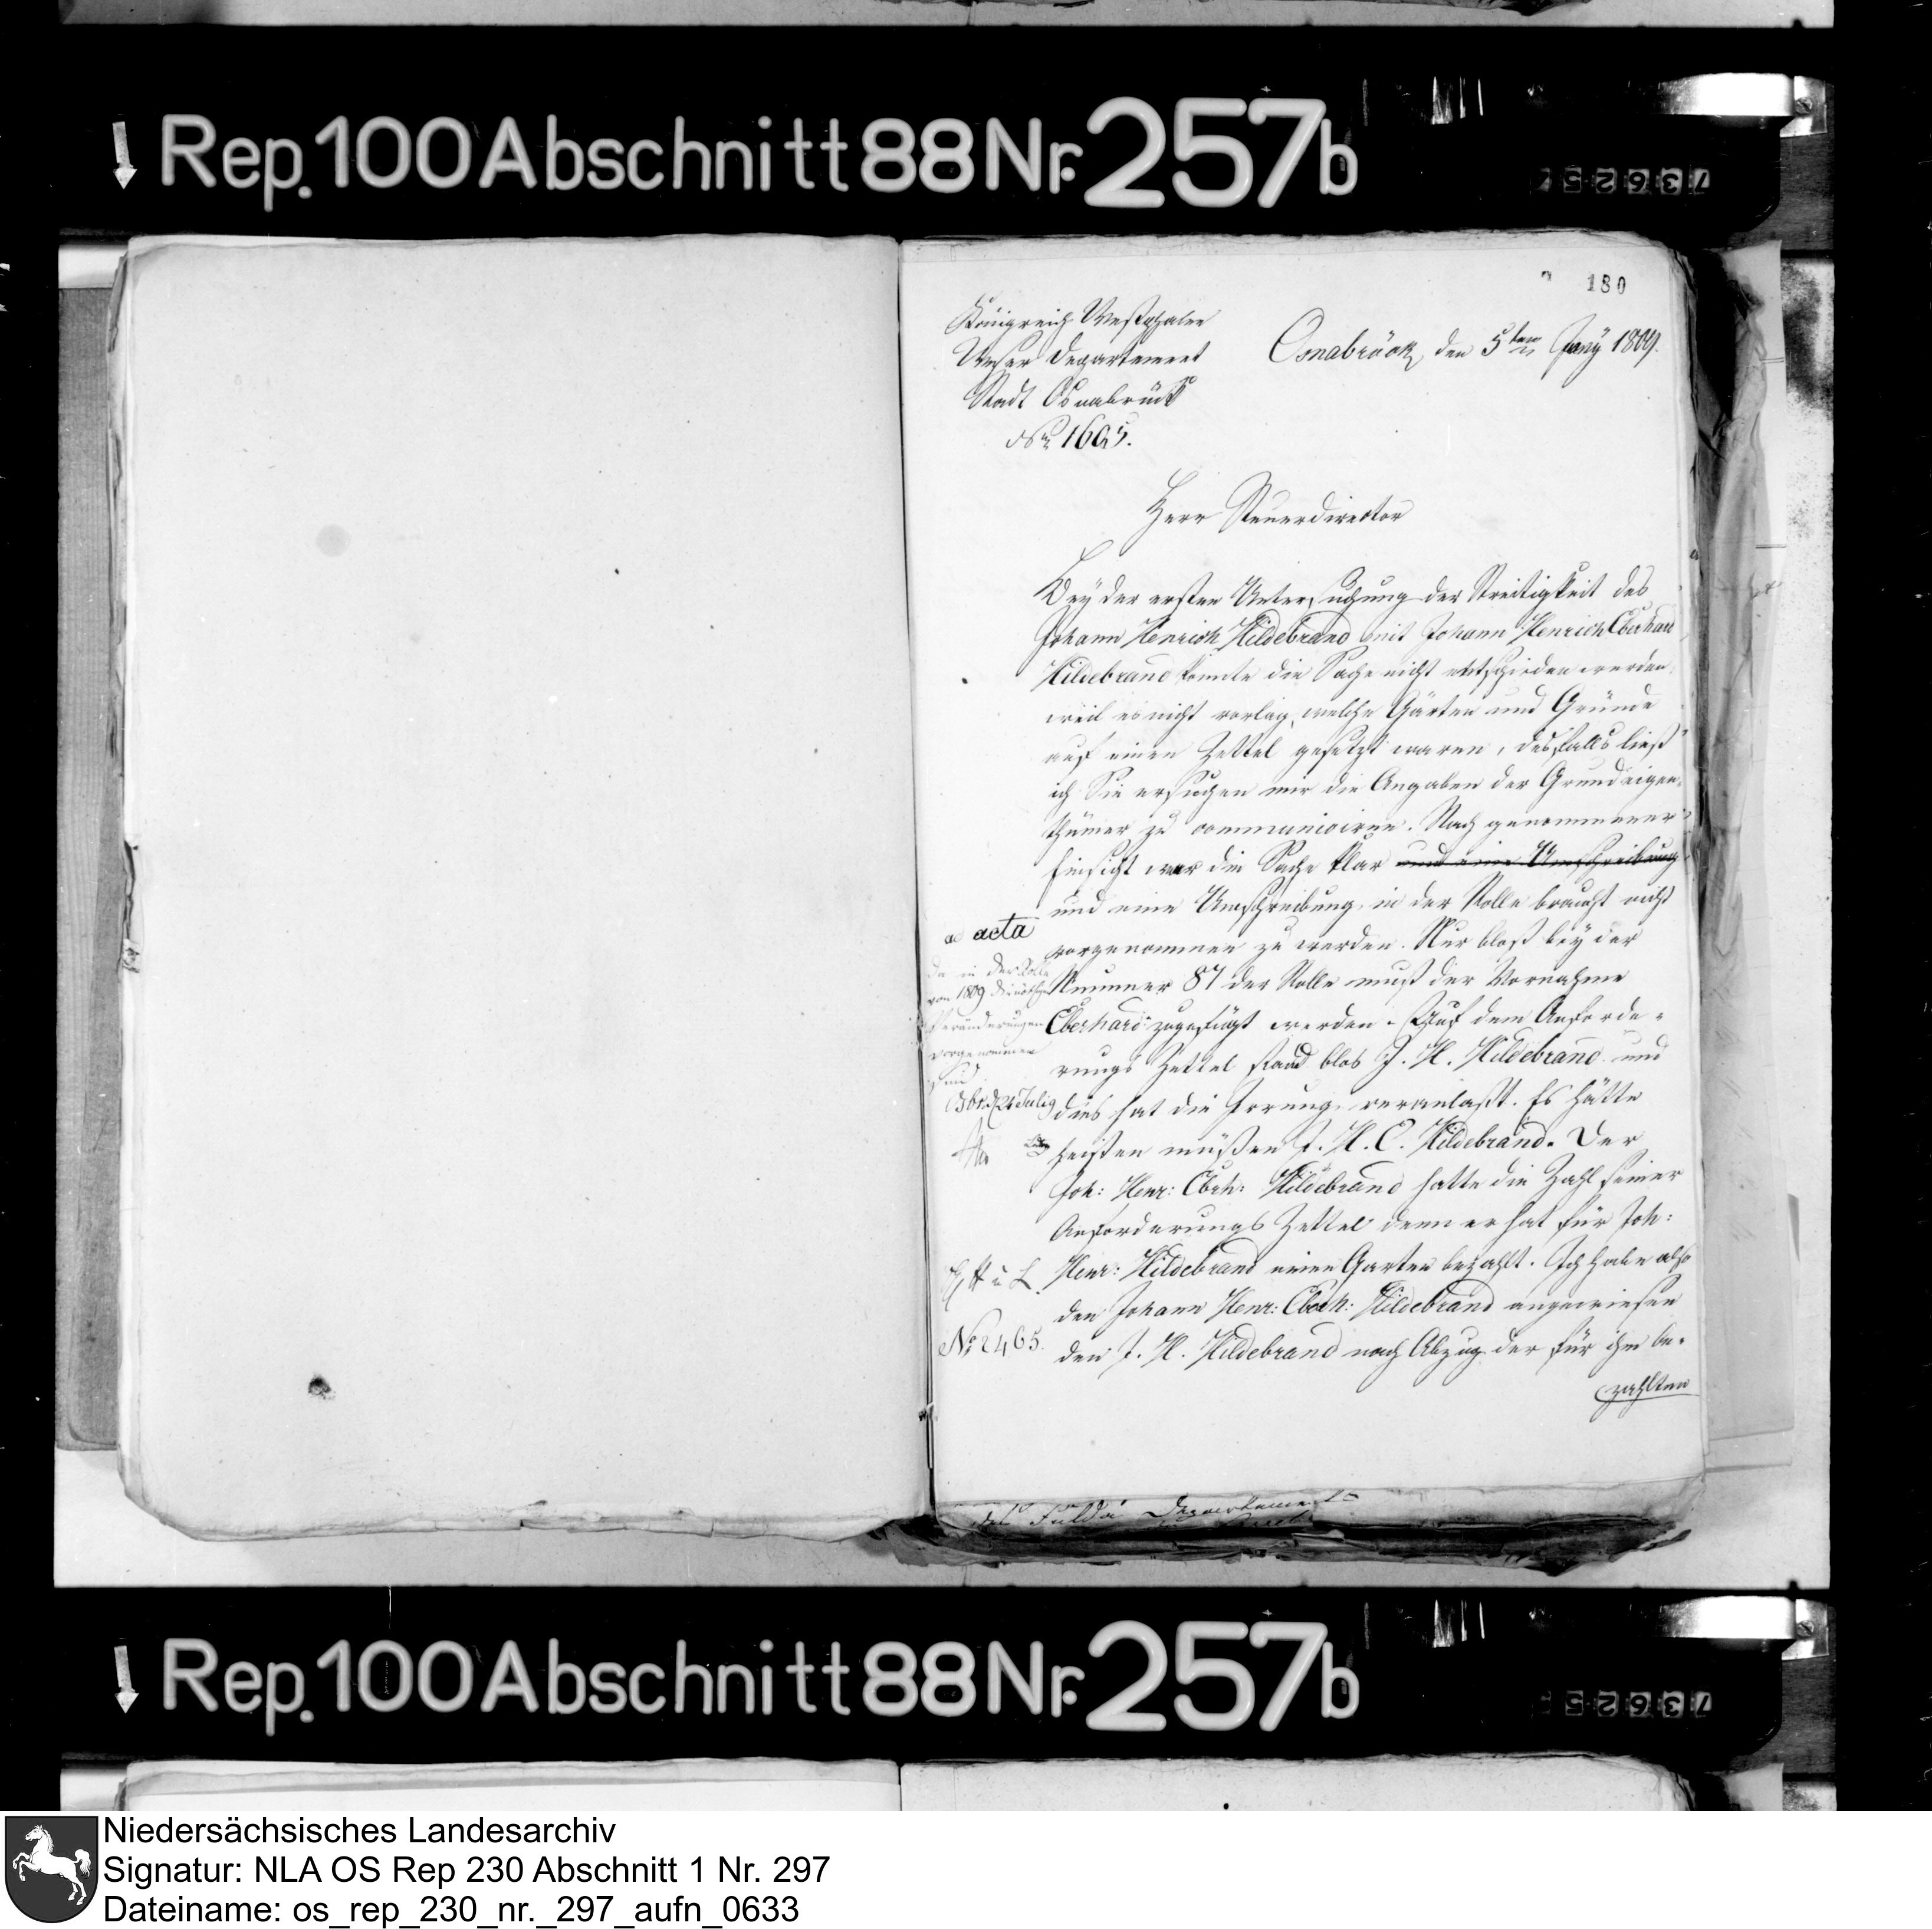 Rep. 100 Abschnitt 88 Nr. 257b
180
Königreich Westphalen
Weser Departement
Stadt Osnabrück
No 1605.
Osnabrück, den 5ten Juny 1809.
Herr Steuerdirector
Bey der ersten Untersuchung der Streitigkeit des
Johann Henrich Hildebrand mit Johann Henrich Eberhard
Hildebrand konnte die Sache nicht entschieden werden,
weil es nicht vorlag, welche Gärten und Gründe
auf einen Zettel gesetzt waren, desfalls ließ
ich Sie ersuchen mir die Angaben der Grundeigen-
thümer zu communiciren. Nach genommener
Einsicht war die Sache klar und eine Umschreibung
und eine Umschreibung in der Rolle braucht nicht
vorgenommen zu werden. Nur bloß bey der
Nummer 87 der Rolle muß der Vornahme
Eberhard zugefügt werden. Auf dem Anforde-
rungs Zettel stand blos J. H. Hildebrand und
dies hat die Irrung veranlaßt. Es hätte
heißen müßen J. H. E. Hildebrand. Der
Joh: Henr: Ebrh: Hildebrand hatte die Zahl seiner
Anforderungs Zettel denn er hat für Joh:
Henr: Hildebrand einen Garten bezahlt. Ich habe also
den Johann Henr: Eberh: Hildebrand angewiesen
den J. H. Hildebrand nach Abzug der für ihm be-
zahlten
ad acta
da in der Rolle
von 1809 die nöthigen
Veränderungen
vorgenommen
sind
Osbr. d 24 July
No 2465.
des Fulda Departements
Rep. 100 Abschnitt 88 Nr. 257b
Niedersächsisches Landesarchiv
Signatur: NLA OS Rep 230 Abschnitt 1 Nr. 297
Dateiname: os_rep_230_nr._297_aufn_0633